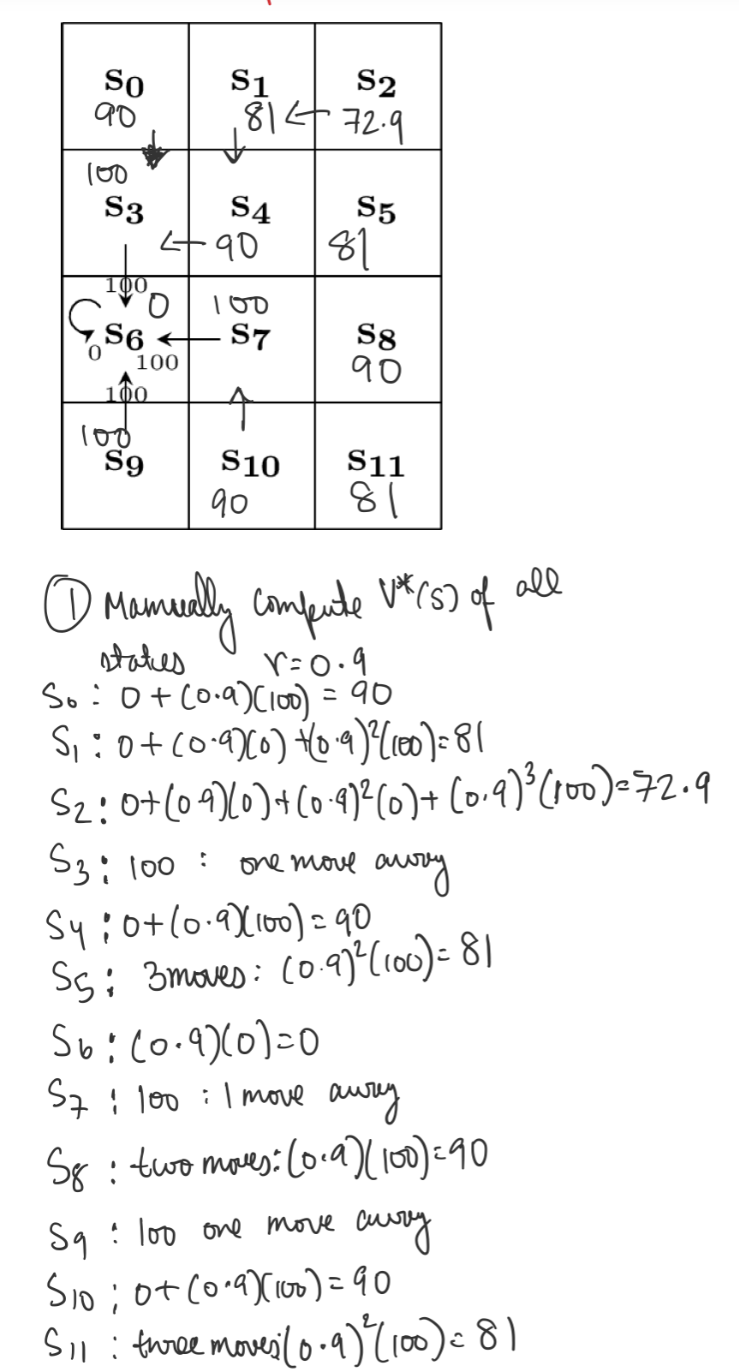 S0 S1 S2
90 81 ← 72.9
100
S3 S4 S5
← 90 81
100 0 100
S6 S7 S8
0 100 90
100
100
S9 S10 S11
90 81
① Manually compute V*(s) of all
states r=0.9
S0: 0+(0.9)(100) = 90
S1: 0+(0.9)(0)+(0.9)²(100)=81
S2: 0+(0.9)(0)+(0.9)²(0)+(0.9)³(100)=72.9
S3: 100 : one move away
S4: 0+(0.9)(100)=90
S5: 3moves: (0.9)²(100)=81
S6: (0.9)(0)=0
S7: 100 : 1 move away
S8: two moves: (0.9)(100)=90
S9: 100 one move away
S10: 0+(0.9)(100)=90
S11: three moves:(0.9)²(100)=81